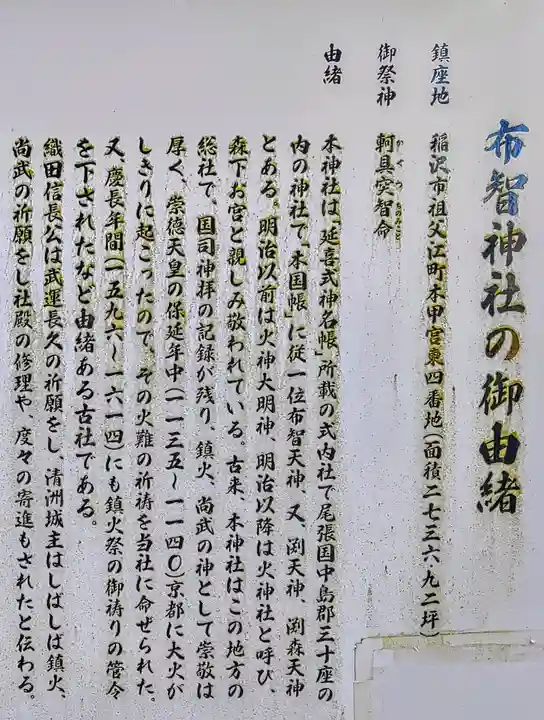 布智神社の御由緒
鎮座地　稲沢市祖父江町本甲宮東四番地(面積二七三六九二坪)
御祭神　軻具突智命
かぐつちのみこと
由緒
本神社は、「延喜式神名帳」所載の式内社で尾張国中島郡三十座の
内の神社で「本国帳」に従一位布智天神、又、渕天神、渕森天神
とある。明治以前は火神大明神、明治以降は火神社と呼び、
森下お宮と親しみ敬われている。古来、本神社はこの地方の
総社で、国司神拝の記録が残り、鎮火、尚武の神として崇敬は
厚く、崇徳天皇の保延年中(一一三五〜一一四〇)京都に大火が
しきりに起こったので、その火難の祈祷を当社に命ぜられた。
又、慶長年間(一五九六〜一六一四)にも鎮火祭の御祷りの管令
を下されたなど由緒ある古社である。
織田信長公は武運長久の祈願をし、清洲城主はしばしば鎮火、
尚武の祈願をし社殿の修理や、度々の寄進もされたと伝わる。